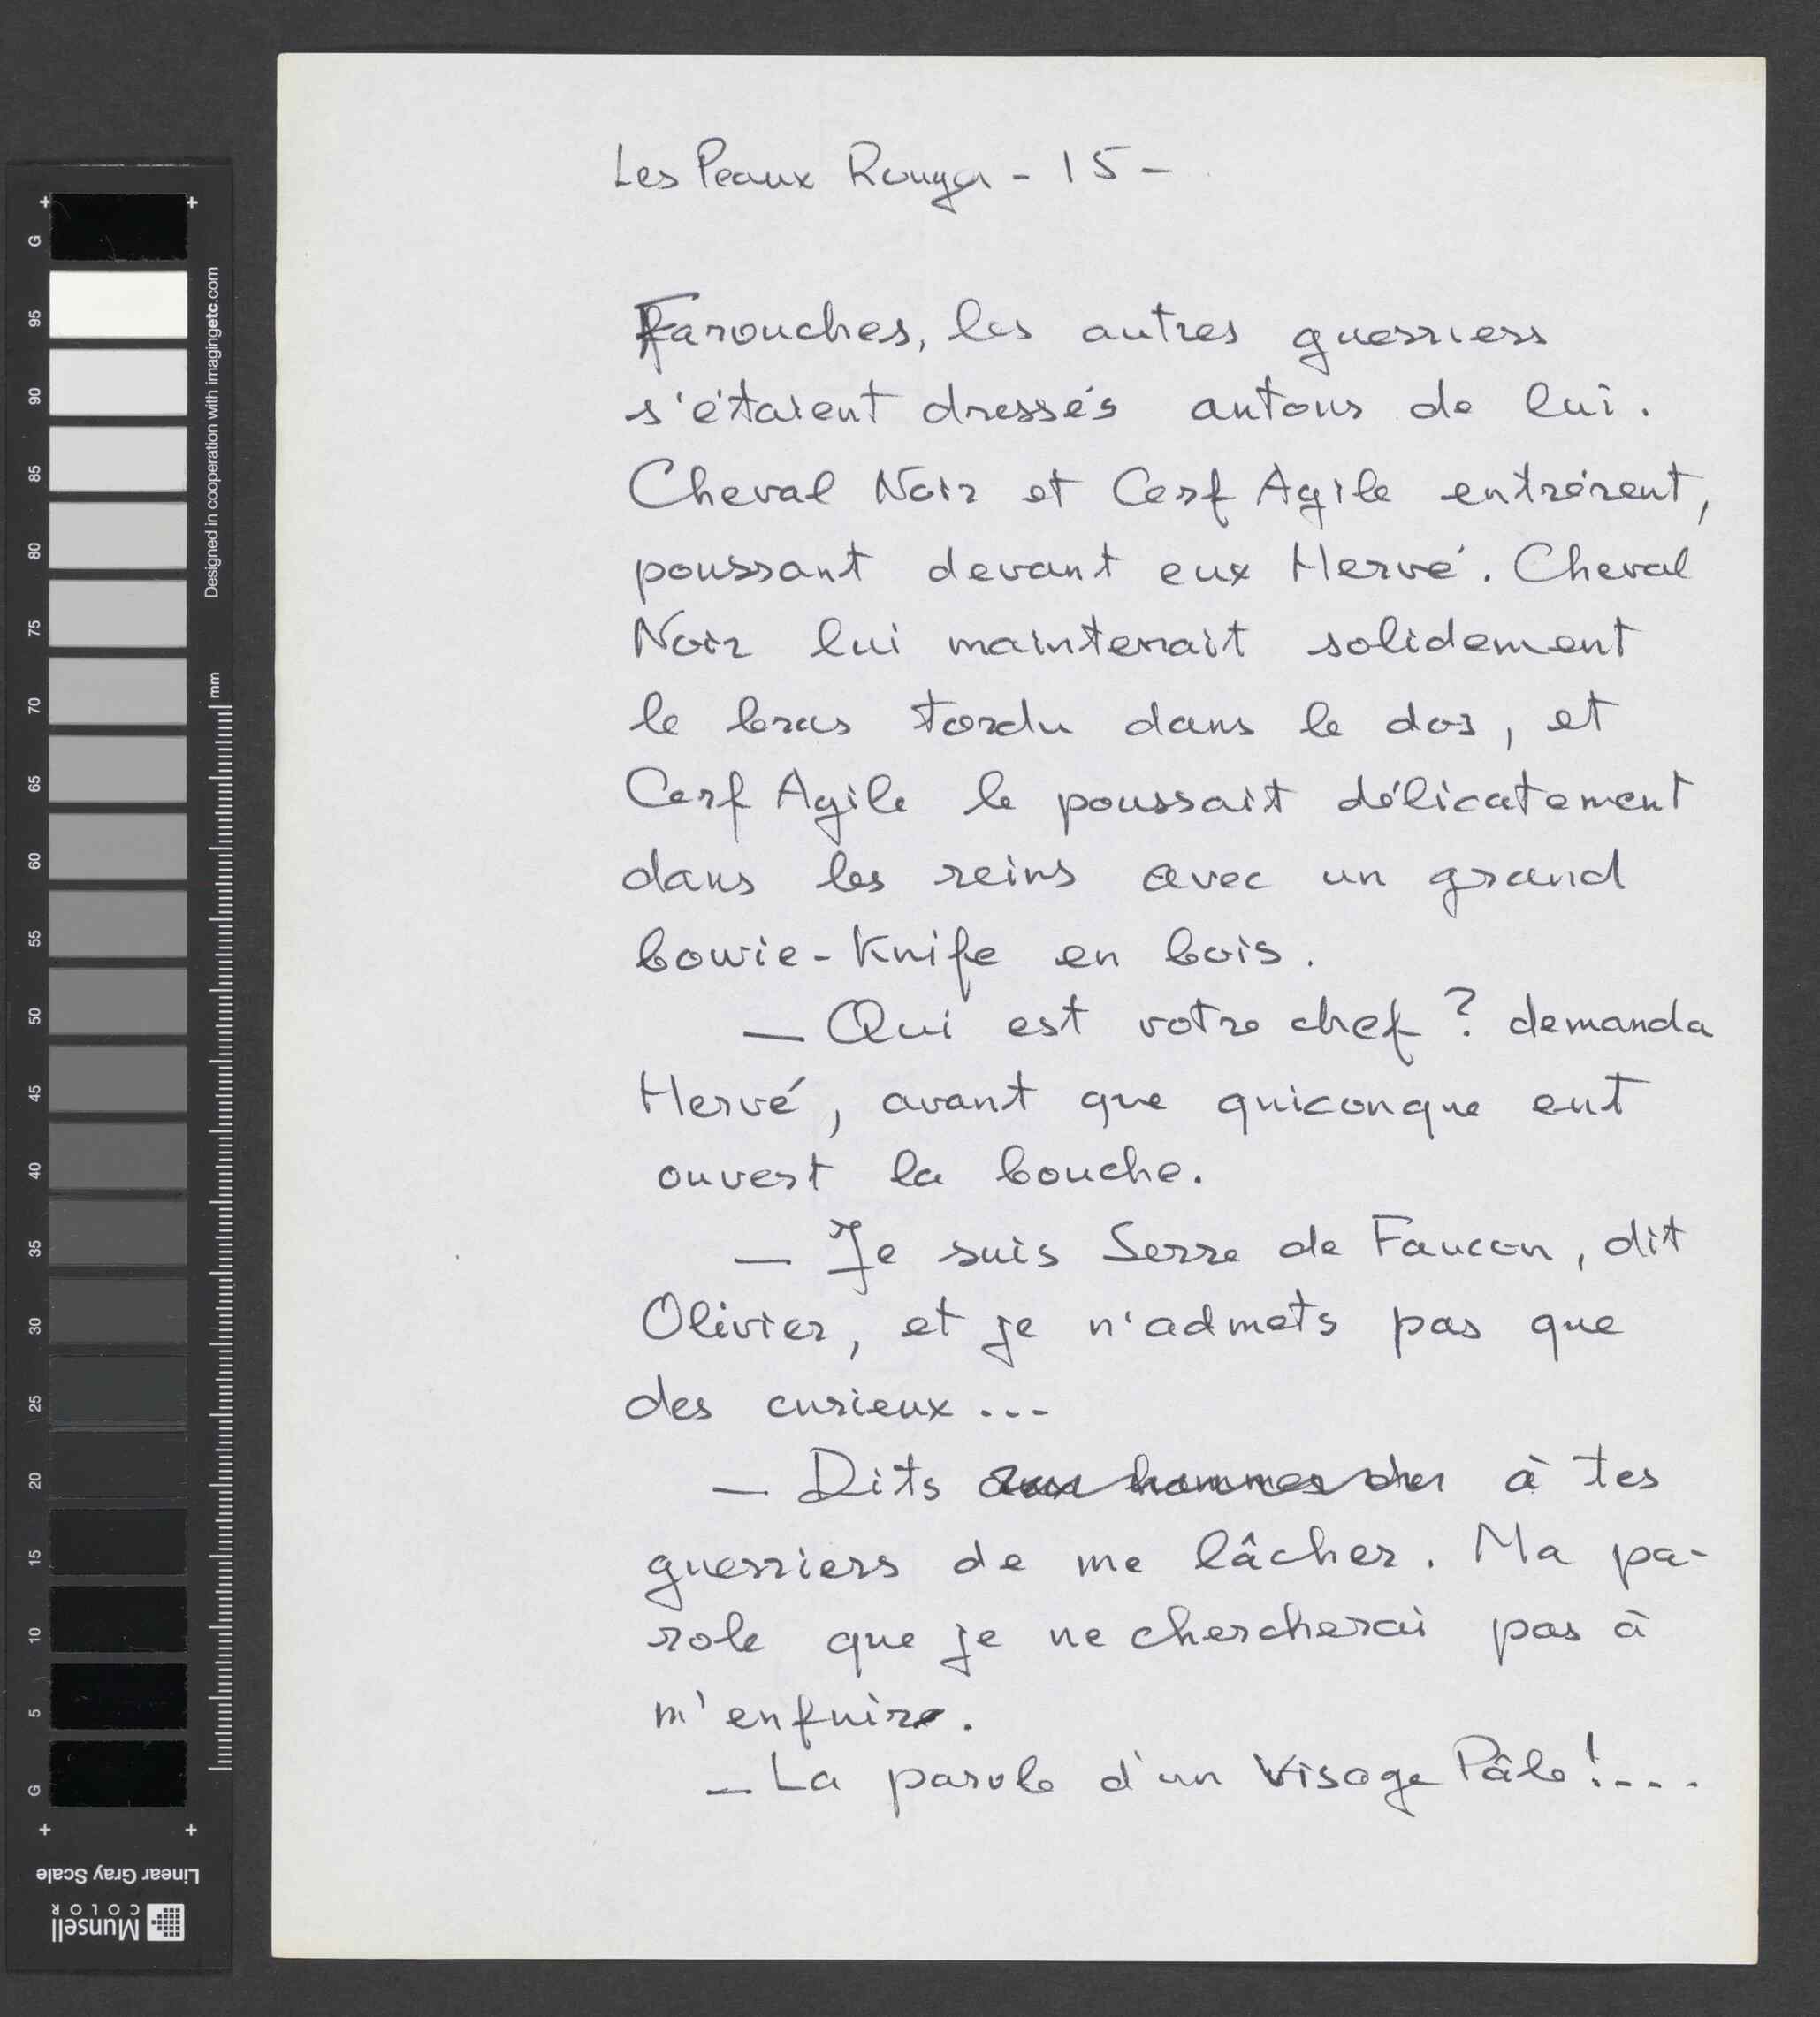 Les Peaux Rouges - 15 -
Farouches, les autres guerriers
s'étaient dressés autour de lui.
Cheval Noir et Cerf Agile entrèrent,
poussant devant eux Hervé. Cheval
Noir lui maintenait solidement
le bras tordu dans le dos, et
Cerf Agile le poussait délicatement
dans les reins avec un grand
bowie-knife en bois.
— Qui est votre chef ? demanda
Hervé, avant que quiconque eut
ouvert la bouche.
— Je suis Serre de Faucon, dit
Olivier, et je n'admets pas que
des curieux ...
— Dits à tes
guerriers de me lâcher. Ma pa-
role que je ne chercherai pas à
m'enfuir.
— La parole d'un Visage Pâle !...
G
95
90
85
80
75
70
65
60
55
50
45
40
35
30
25
20
15
10
5
G
Designed in cooperation with imagingetc.com
mm
Linear Gray Scale
Munsell
COLOR